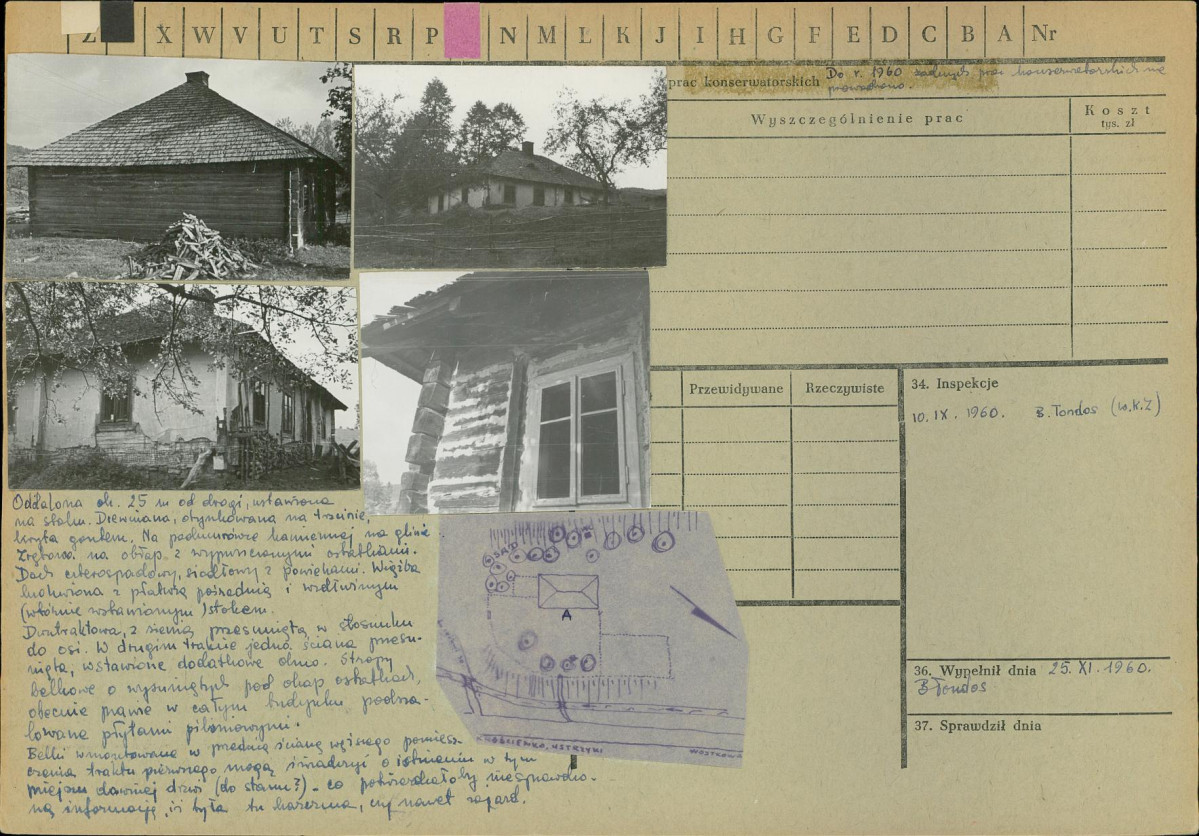 Z X W V U T S R P N M Ł K J I H G F E D C B A Nr
prac konserwatorskich Do r. 1960 żadnych prac konserwatorskich nie
prowadzono.
Wyszczególnienie prac
Koszt
tys. zł
Przewidywane
Rzeczywiste
34. Inspekcje
10. IX. 1960. B. Tondos (W.K.Z)
Oddalona ok. 25 m od drogi, ustawiona
na stoku. Drewniana, otynkowana na trzcinie,
kryta gontem. Na podmurówce kamiennej na glinie
Zrębowa na obłap z wypuszczonymi ostatkami.
Dach czterospadowy, siodłowy z powiekami. Więźba
z płatwią pośrednią i
(wtórnie wstawionym) stolcem.
Dwutraktowa, z sienią przesuniętą w stosunku
do osi. W drugim trakcie jedna ściana przesu-
nięta, wstawione dodatkowe okno. Stropy
belkowe o wysuniętych pod okap ostatkach,
obecnie prawie w całym budynku podsza-
lowane płytami pilśniowymi.
Belki wmontowane w przednią ścianę węższego pomiesz-
czenia traktu pierwszego mogą świadczyć o istnieniu w tym
miejscu dawniej drzwi (do stanu?) - co potwierdzałoby niesprawdzo-
ną informację, iż była tu karczma, czy nawet zajazd.
SAD
A
KROŚCIENKO, USTRZYKI
36. Wypełnił dnia 25. XI. 1960.
B Tondos
37. Sprawdził dnia